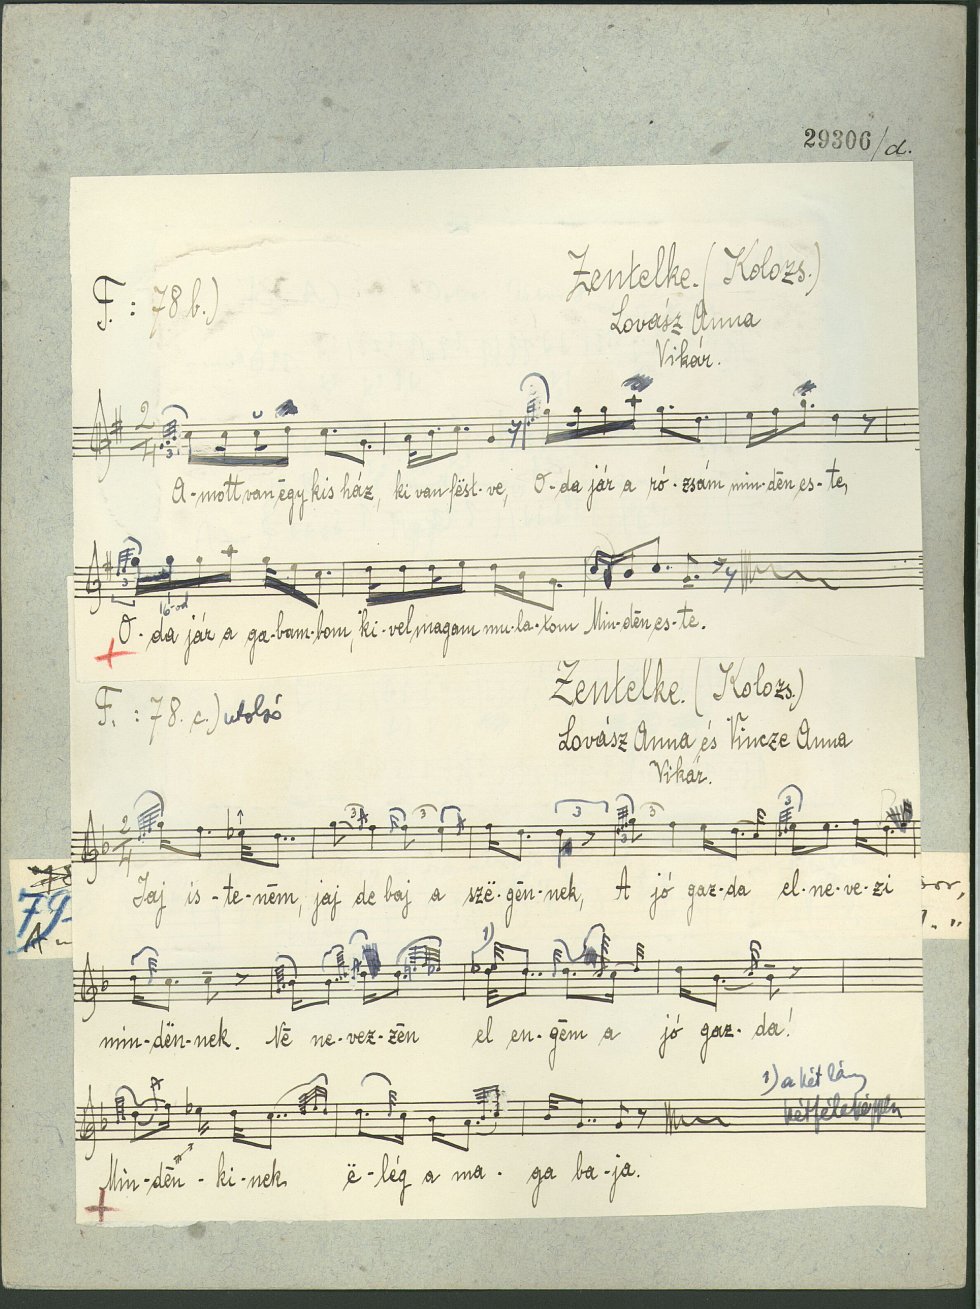 29306/d.
F.: 78 b.)
Zentelke. (Kolozs.)
Lovász Anna
Vikár.
A-mott van ëgy kis ház, ki van fëst-ve, O-da jár a ró-zsám min-dën es-te,
16-od
O-da jár a ga-bam-bom, ki-vel magam mu-la-tom Min-dën es-te.
F.: 78. c.) utolsó
Zentelke. (Kolozs.)
Lovász Anna és Vincze Anna
Vikár.
Jaj is-te-nëm, jaj de baj a szë-gén-nek, A jó gaz-da el-ne-ve-zi
79.
min-dën-nek. Në ne-vez-zën el en-gëm a jó gaz-da!
1) a két lány
kétféleképpen
Min-dën-ki-nek ë-lég a ma-ga ba-ja.